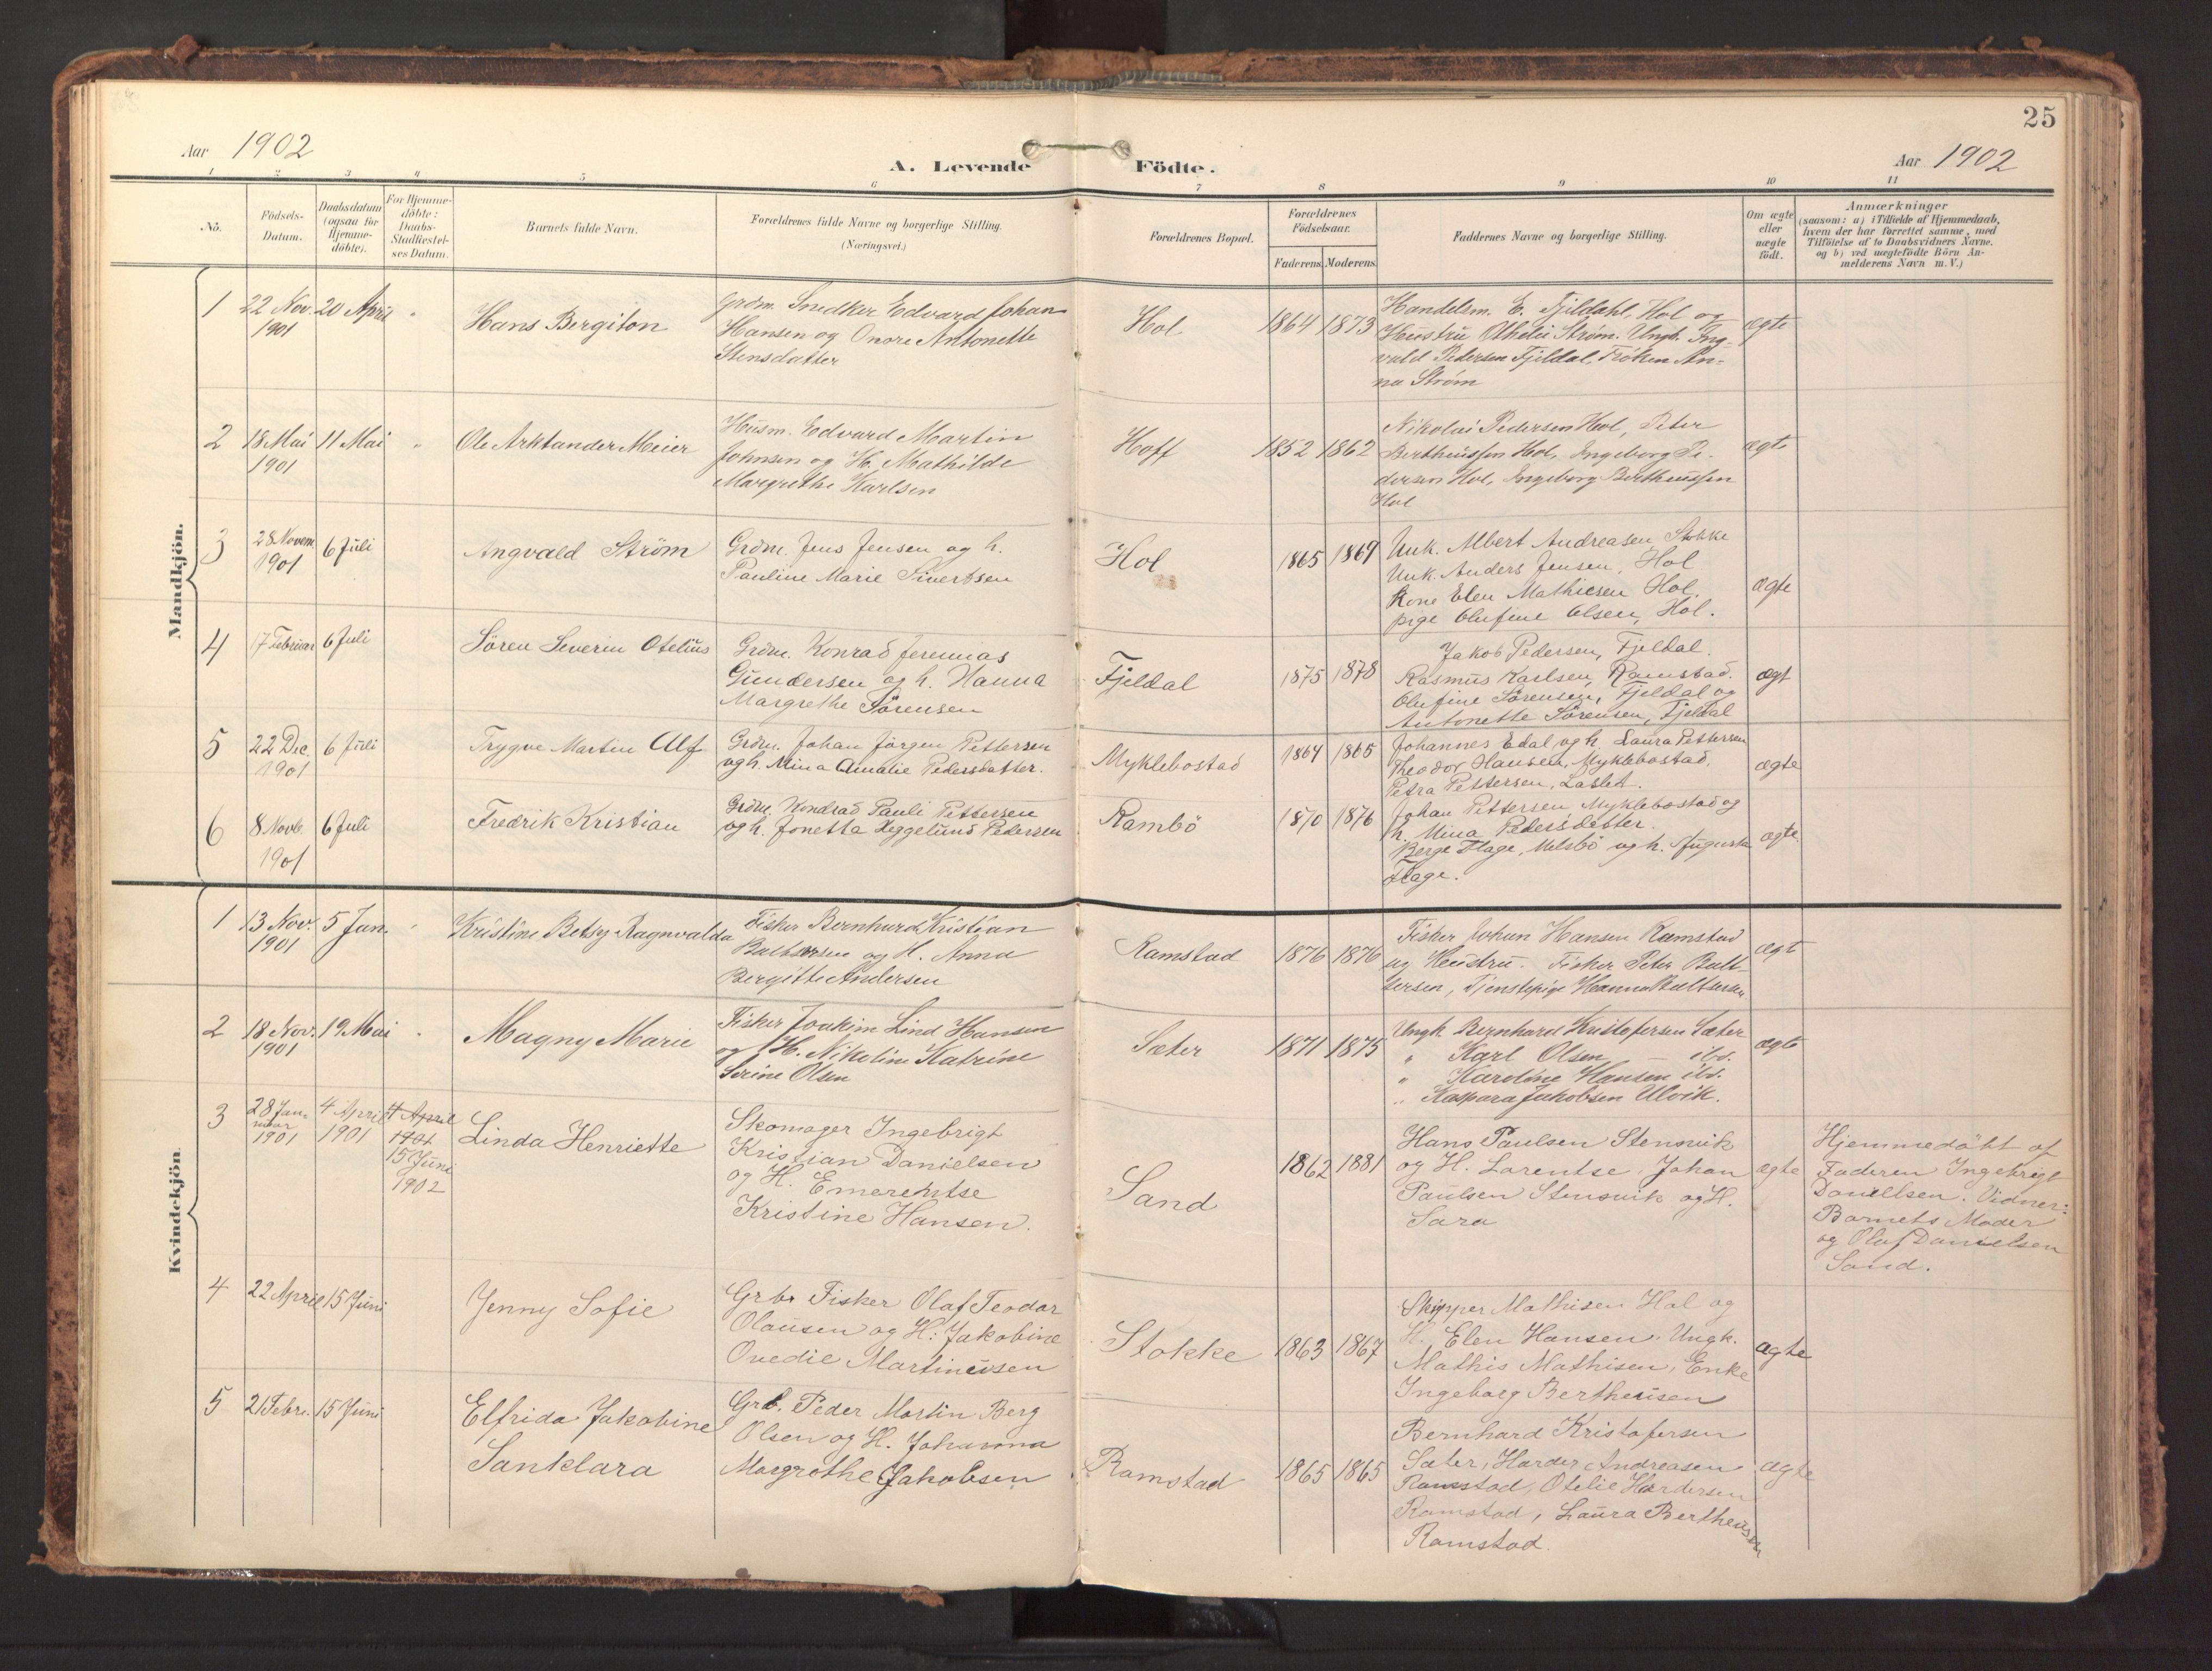 25
Aar 1902
A. Levende Födte.
Aar 1902
1 2 3 4 5 6 7 8 9 10 11
No.
Födsels-
Datum.
Daabsdatum
(ogsaa for
Hjemme-
döbte).
For Hjemme-
döbte:
Daabs-
Stadfæstel-
ses Datum.
Barnets fulde Navn.
Forældrenes fulde Navne og borgerlige Stilling.
(Næringsvei.)
Forældrenes Bopæl.
Forældrenes
Födselsaar.
Faderens. Moderens.
Faddernes Navne og borgerlige Stilling.
Om ægte
eller
uægte
födt.
Anmærkninger
(saasom: a) i Tilfælde af Hjemmedaab,
hvem der har forrettet samme, med
Tilföielse af to Daabsvidners Navne,
og b) ved uægtefödte Börn An-
melderens Navn m. V.)
Mandkjön.
1
22 Nov.
1901
20 April
"
Hans Bergiton
Grdm. Snedker Edvard Johan
Hansen og Onore Antonette
Stensdatter
Hol
1864 1873
Handelsm. E. Fjeldahl, Hol og
Hustru Othelie Strøm. Ungk. Ing-
vald Pedersen Fjeldal, Frøken An-
na Strøm
ægte
2
18 Mai
1901
11 Mai
"
Ole Arktander Meier
Husm. Edvard Martin
Johnsen og H. Mathilde
Margrethe Karlsen
Hoff
1852 1862
Nikolai Pedersen Hol, Peter
Bertheussen Hol, Ingeborg Pe-
dersen Hol, Ingeborg Bertheussen
Hol
ægte
3
28 Novem
1901
6 Juli
Angvald Ström
Grdm. Jens Jensen og h.
Pauline Marie Sivertsen
Hol
1865 1869
Unk. Albert Andreasen Stokke
Unk. Anders Jensen, Hol
Kone Elen Mathiesen Hol.
pige Olufine Olsen, Hol.
ægte
4
17 Februar
6 Juli
Sören Severin Otelius
Grdm. Konrad Jeremias
Gundersen og h. Hanna
Margrethe Sörensen
Fjeldal
1875 1878
Jakob Pedersen, Fjeldal.
Rasmus Karlsen, Ramstad.
Olufine Sörensen, Fjeldal og
Antonette Sörensen, Fjeldal
ægt
5
22 Dec.
1901
6 Juli
Trygve Martin Alf
Grdm. Johan Jörgen Pettersen
og h. Mina Amalie Pedersdatter.
Myklebostad
1864 1865
Johannes Edal og h. Laura Pettersen
Theodor Hansen, Myklebostad,
Petra Pettersen, Laslet.
ægte
6
8 Novb.
1901
6 Juli
Fredrik Kristian
Grdm. Kondrad Pauli Pettersen
og h. Jonetta Heggelund Pedersen
Rambö
1870 1876
Johan Pettersen Myklebostad og
h. Mina Pedersdatter.
Berge Flage, Melsbö og h. Augusta
Flage.
ægte.
Kvindekjön.
1
13 Nov.
1901
5 Jan.
"
Kristine Betsy Ragnvalda
Fisker Bernhard Kristian
Baltsersen og H. Anna
Bergitte Andersen
Ramstad
1876 1876
Fisker Johan Hansen Ramstad
og Hustru. Fisker Peter Balt-
sersen, Tjenstepige Hanna Baltsersen
ægt
2
18 Nov.
1901
19 Mai
"
Magny Marie
Fisker Joakim Lind Hansen
og H. Nikoline Katrine
Serine Olsen
Sæter
1871 1875
Ungk. Bernhard Kristofersen Sæter
" Karl Olsen — ibd.
" Karoline Hansen ibd.
" Kaspara Jakobsen Ulvik.
ægte
3
28 Jan-
uar
1901
4 April
1901
4 April
1901
15 Juni
1902
Linda Henriette
Skomager Ingebrigt
Kristian Danielsen
og H. Emerentse
Kristine Hansen.
Sand
1862 1881
Hans Paulsen Stensvik
og H. Lorentse, Johan
Paulsen Stensvik og H.
Sara
ægte
Hjemmedöbt af
Faderen Ingebrigt
Daniellsen. Vidner:
Barnets Moder
og Olaf Danielsen
Sand.
4
22 April
15 Juni
Jenny Sofie
Grbr Fisker Olaf Teodor
Olausen og H: Jakobine
Ovedie Martinusen
Stokke
1863 1867
Skipper Mathisen Hol og
H. Elen Hansen. Ungk.
Mathis Mathisen, Enke
Ingeborg Bertheusen
ægte
5
21 Febr.
15 Juni
Elfrida Jakobine
Sanklara
Grb. Peder Martin Berg
Olsen og H. Johanna
Margrethe Jakobsen
Ramstad
1865 1865
Bernhard Kristofersen
Sæter, Harder Andreasen
Ramstad, Otelie Hardersen
Ramstad, Laura Bertheusen
Ramstad.
ægte